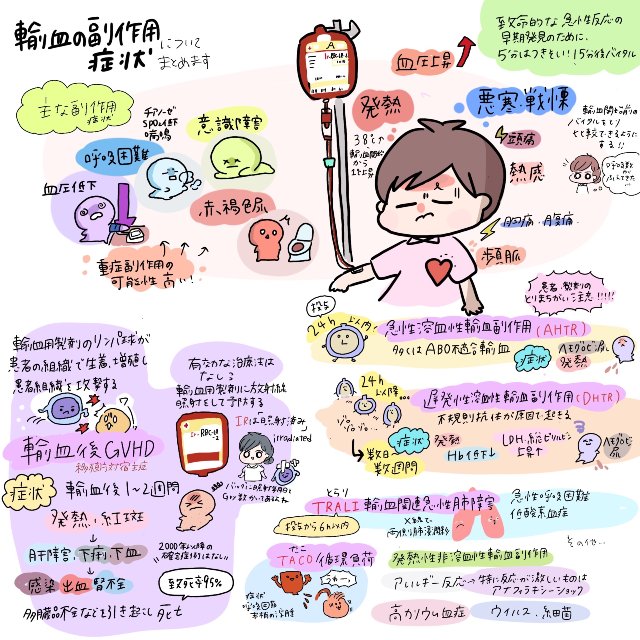 輸血の副作用
症状について
まとめます
致命的な急性反応の
早期発見のために、
5分はつきそい！15分後バイタル
血圧上昇
主な副作用
症状
チアノーゼ
SPO2低下
喘鳴
意識障害
呼吸困難
血圧低下
赤褐色尿
重症副作用の
可能性高い！
発熱
38℃↑
輸血開始
から
1℃上昇
悪寒・戦慄
頭痛
熱感
胸痛・腹痛
頻脈
輸血開始前の
バイタルをもり
比較できるように
する!!
患者・製剤の
とりまちがい注意!!!!!
投与
24h以内！
急性溶血性輸血副作用(AHTR)
多くはABO不適合輸血
症状
ヘモグロビン尿
発熱
24h
以降…
遅発性溶血性輸血副作用(DHTR)
不規則抗体が原因で起きる
数日～
数週間
症状
発熱
Hb低下↓
LDH・総ビリルビン
上昇↑
ヘモグロビン
尿
とらり
TRALI 輸血関連急性肺障害
投与から6h以内
X線で
両側肺浸潤影
急性呼吸困難
低酸素血症
たこ
TACO 循環負荷
症状
呼吸困難
その他…
発熱性非溶血性輸血副作用
アレルギー反応→特に反応が激しいものは
アナフィラキシーショック
高カリウム血症
ウイルス・細菌
輸血用製剤のリンパ球が
患者の組織で生着、増殖し
患者組織を攻撃する
輸血後GVHD
移植片対宿主症
症状
輸血後1～2週間
発熱・紅斑
肝障害・下痢・下血
感染 出血 腎不全
多臓器不全などを引き起こし死亡
有効な治療法は
なし
輸血用製剤に放射線
照射をして予防する
IRは照射済み
irradiated
Ir-RBC-LR
-2
2000年以降の
確定症例はなし
致死率95%